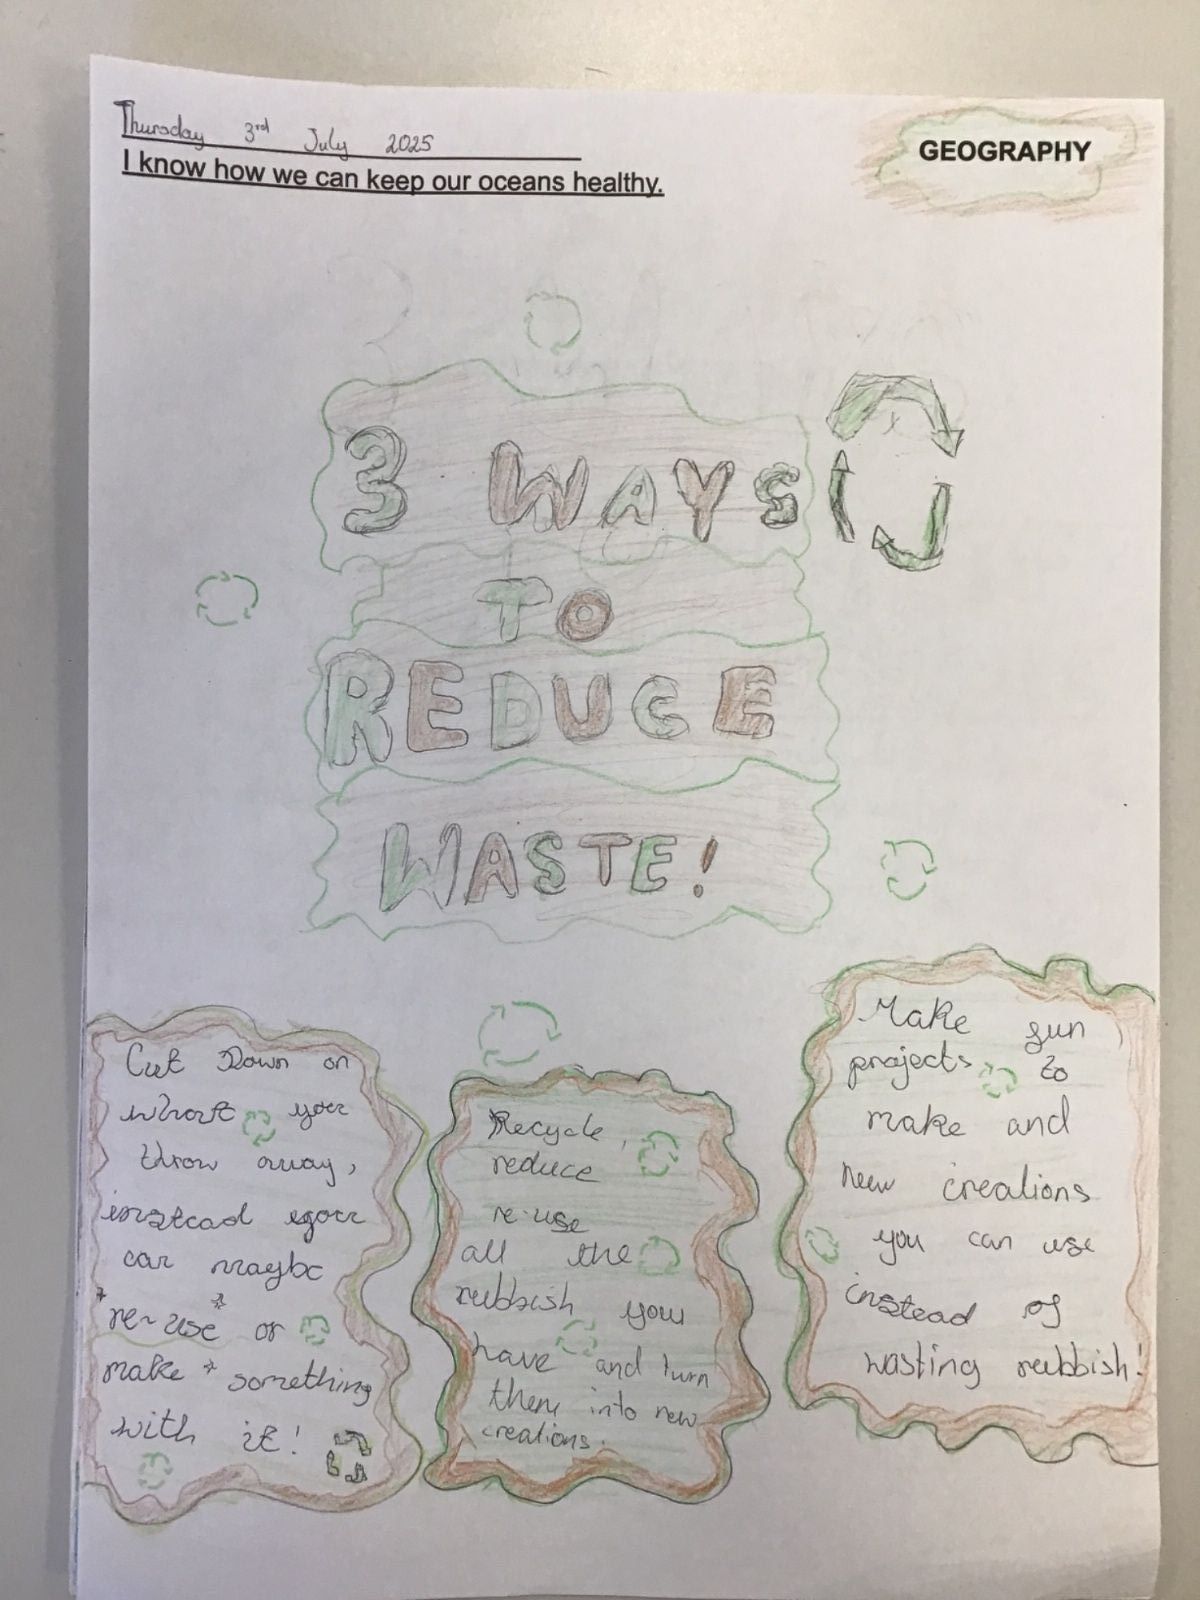 Thursday 3rd July 2025
I know how we can keep our oceans healthy.
GEOGRAPHY
3 WAYS
TO
REDUCE
WASTE!
Cut Down on
what you
throw away,
instead you
can maybe
*re-use* or
make * something
with it!
Recycle,
reduce
re-use
all the
rubbish you
have and turn
them into new
creations.
Make fun
projects to
make and
new creations
you can use
instead of
wasting rubbish!